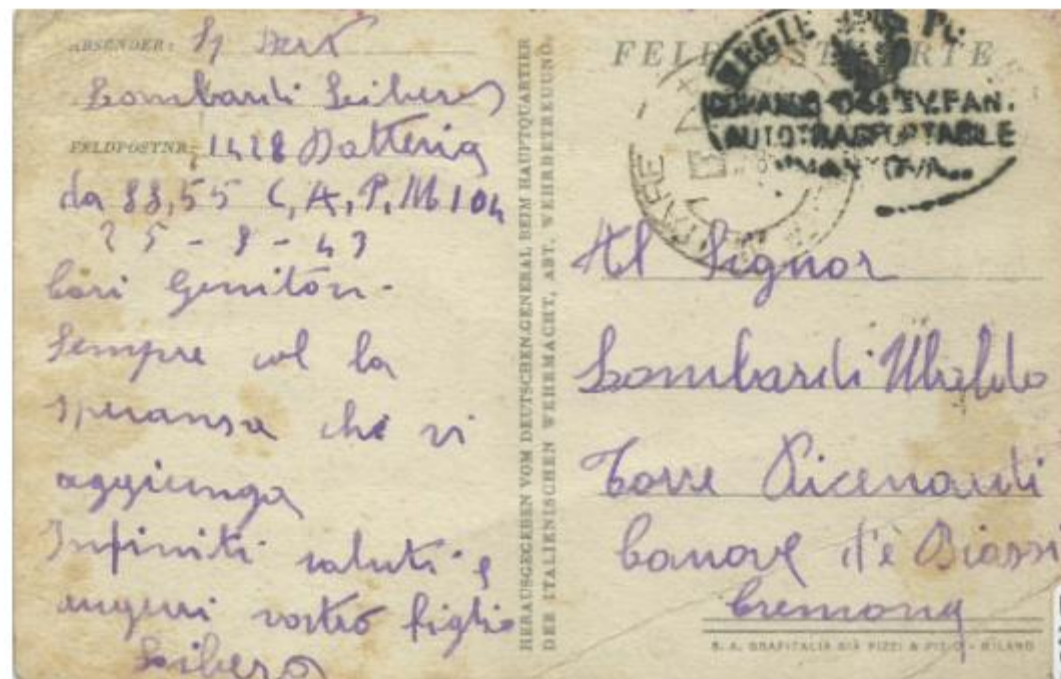 ABSENDER:
Lombardi Libero
FELDPOSTNR. 1428 Batteria
da 88,55 C, A, P, M 104
25 - 3 - 43
Cari Genitori-
Sempre col la
speransa che vi
aggiunga
Infiniti saluti e
auguri vostro figlio
Libero
HERAUSGEGEBEN VOM DEUTSCHEN GENERAL BEIM HAUPTQUARTIER
DER ITALIENISCHEN WEHRMACHT, ABT. WEHRBETREUUNG.
FELDPOSTKARTE
REGIE
FAN.
AUTOTRASPORTABILE
Al Signor
Lombardi Ubaldo
Torre Picenardi
Canove d'è Biassi
Cremona
S. A. GRAFITALIA GIÀ PIZZI & PIZIO - MILANO